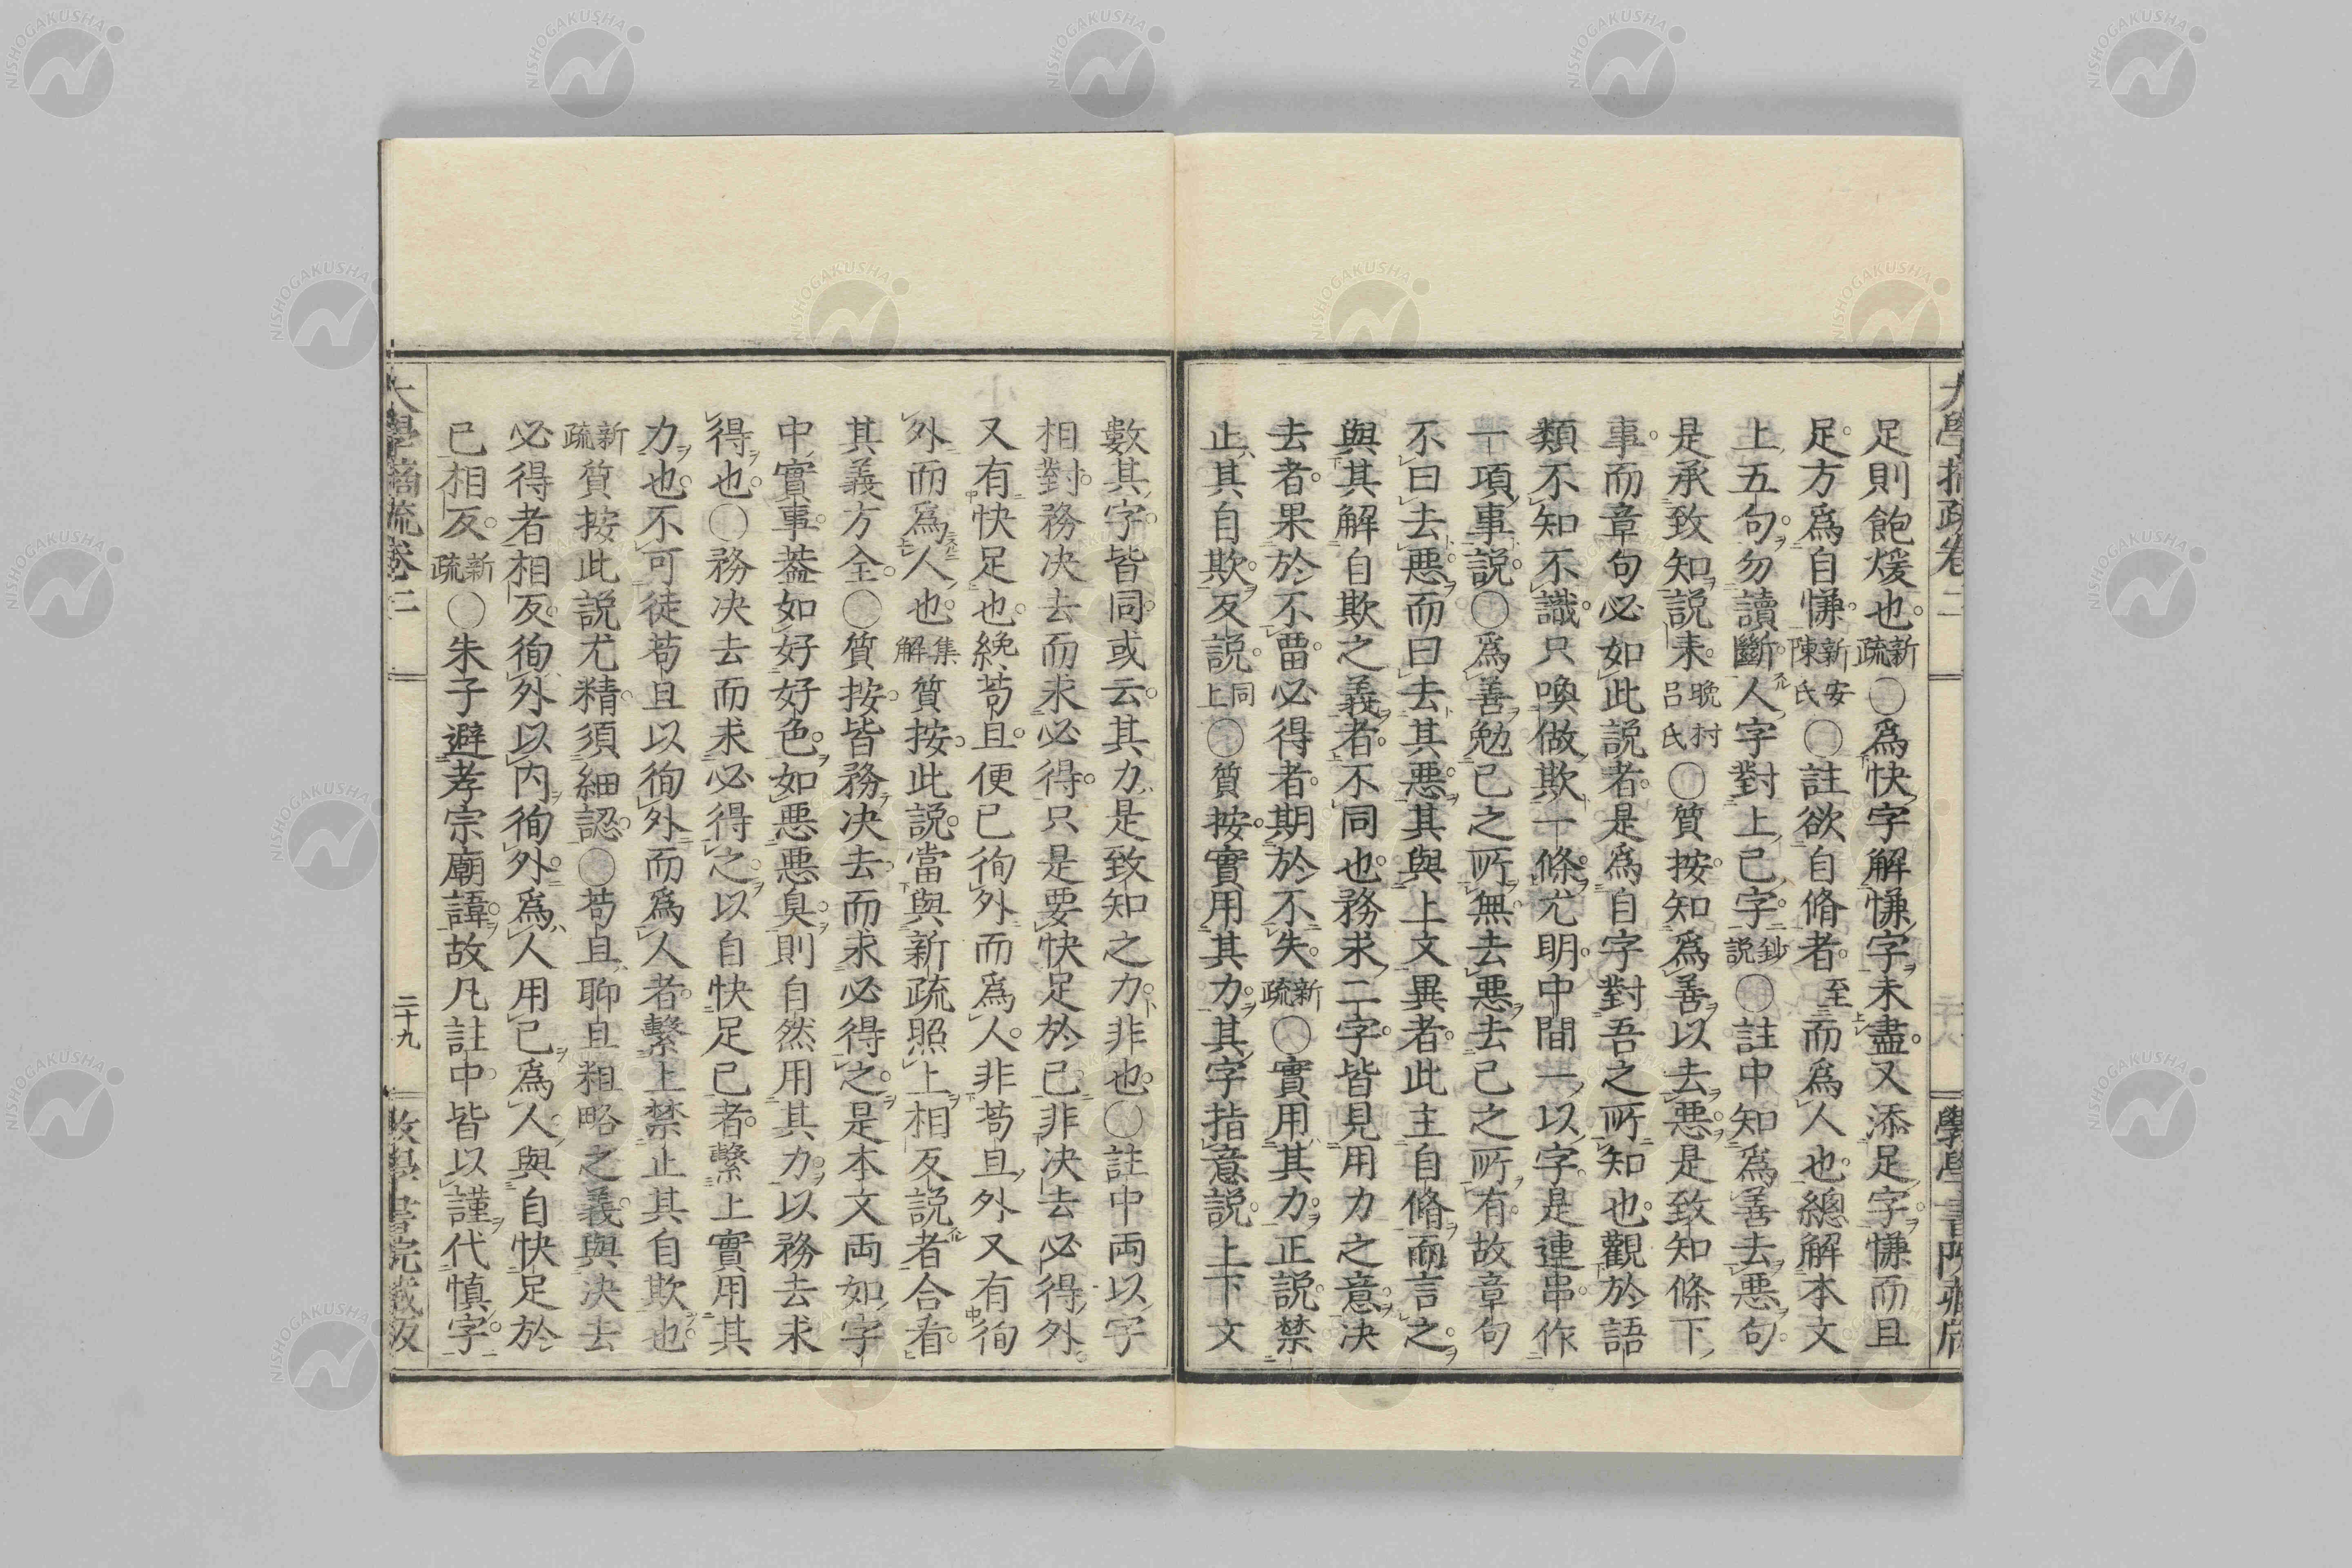 足則飽煖也新疏○為快字解慊字未盡又添足字慊而且
足方為自慊新安陳氏○註欲自脩者至而為人也總解本文
上五句勿讀斷人字對上己字鈔説○註中知為善去惡句
是承致知説來晩村呂氏○質按知為善以去惡是致知條下
事而章句必如此説者是為自字對吾之所知也觀於語
類不知不識只喚做欺一條尤明中間一以字是連串作
一項事説○為善勉己之所無去惡去己之所有故章句
不曰去惡而曰去其惡其與上文異者此主自脩而言之
與其解自欺之義者不同也務求二字皆見用力之意決
去者果於不畱必得者期於不失新疏○實用其力正説禁
止其自欺反説同上○質按實用其力其字指意説上下文
數其字皆同或云其力是致知之力非也○註中両以字
相對務决去而求必得只是要快足於己非决去必得外
又有快足也纔苟且便已徇外而為人非苟且外又有徇
外而為人也集解質按此説當與新疏照上相反説者合看
其義方全○質按皆務决去而求必得之是本文両如字
中實事葢如好好色如惡惡臭則自然用其力以務去求
得也○務决去而求必得之以自快足己者繫上實用其
力也不可徒苟且以徇外而為人者繫上禁止其自欺也
新疏質按此説尤精須細認○苟且聊且粗略之義與決去
必得者相反徇外以内徇外為人用己為人與自快足於
己相反新疏○朱子避孝宗廟諱故凡註中皆以謹代慎字
大學摘疏卷二
二十九
NISHOGAKUSHA